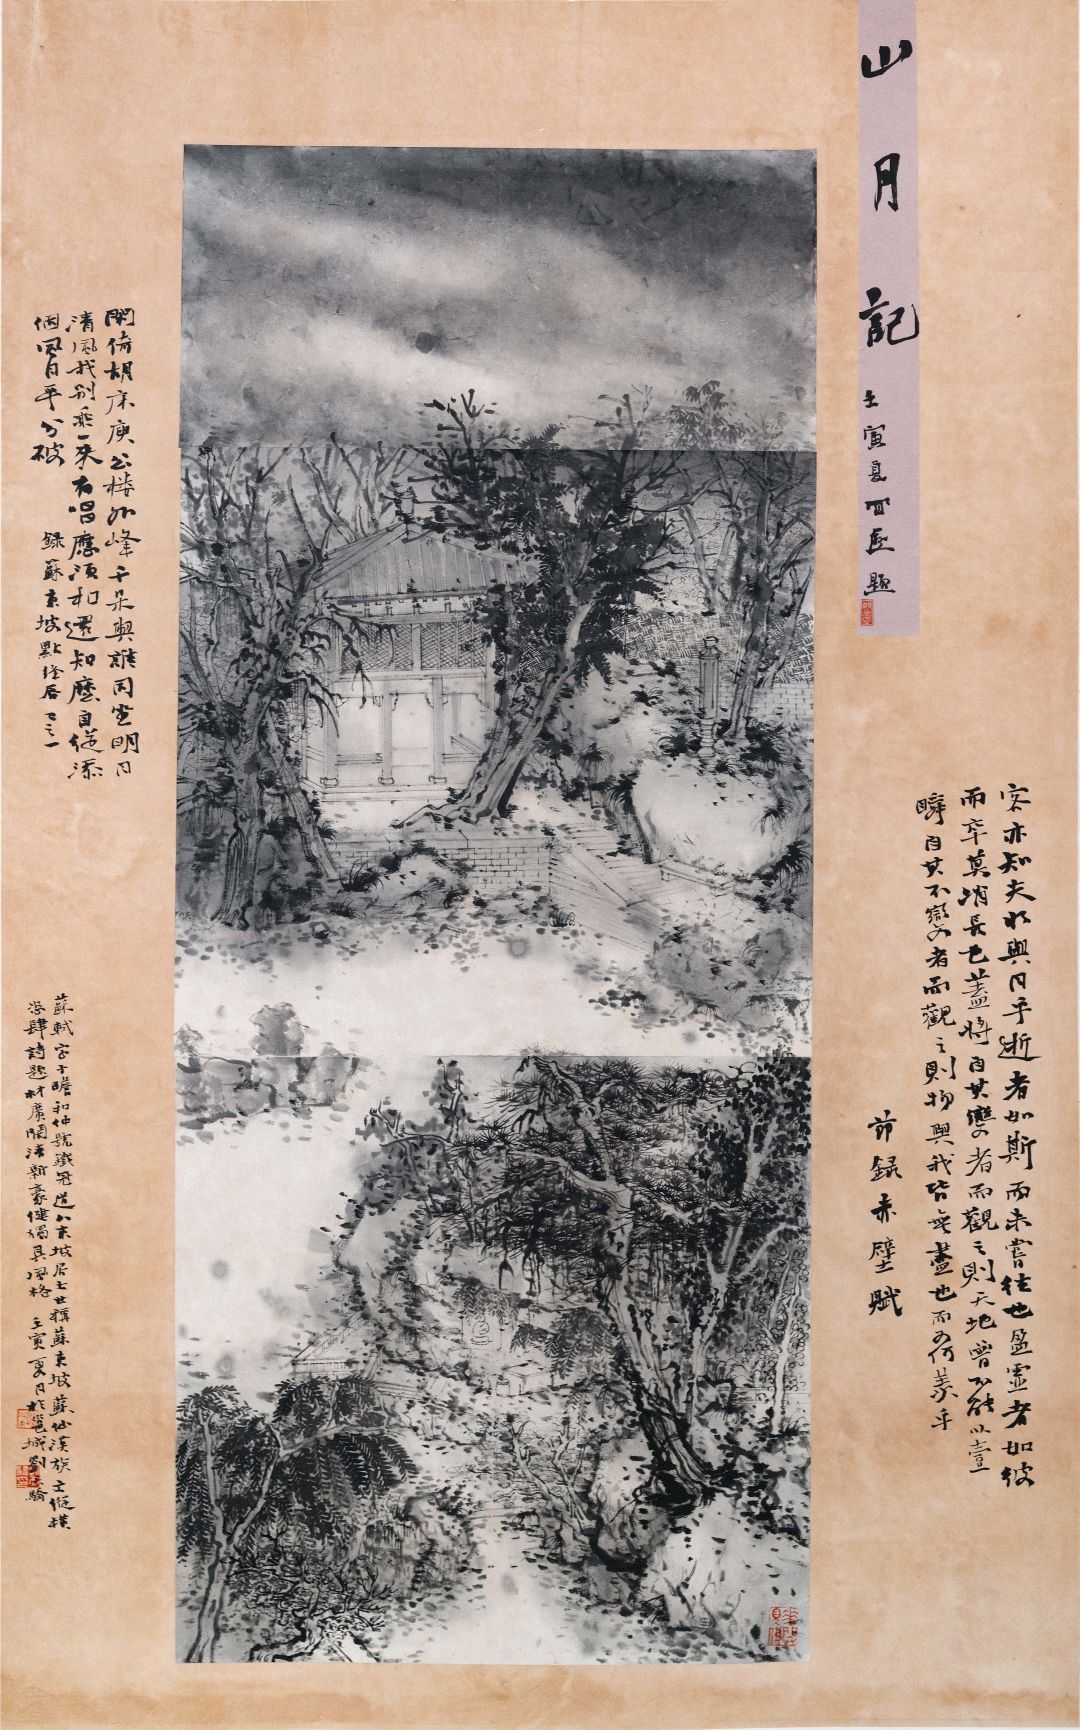 山月記
壬寅夏
題
客亦知夫水與月乎逝者如斯而未嘗往也盈虛者如彼
而卒莫消長也蓋將自其變者而觀之則天地曾不能以壹
瞬自其不變者而觀之則物與我皆無盡也而又何羨乎
節録赤壁賦
閑倚胡床庾公樓外峰千朵與誰同坐明月
清風我別乘一來有唱應須和還知麼自從添
個風月平分破
録蘇東坡點絳唇之一
蘇軾字子瞻和仲號鐵冠道人東坡居士世稱蘇東坡蘇仙漢族士縱橫
恣肆詩題材廣闊清新豪健獨具風格 壬寅夏月於邕城劉